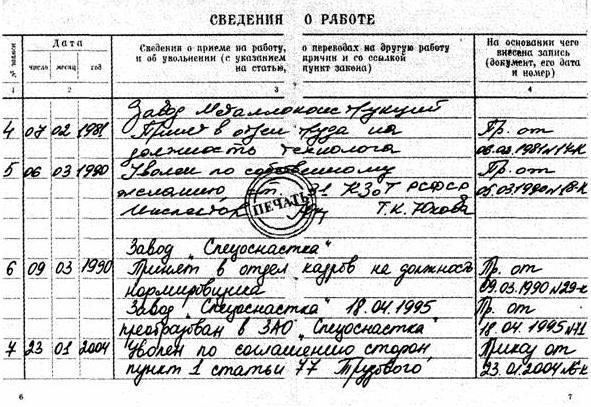 СВЕДЕНИЯ О РАБОТЕ
№ записи
Дата
Сведения о приеме на работу, о переводах на другую работу
и об увольнении (с указанием причин и со ссылкой
на статью, пункт закона)
На основании чего
внесена запись
(документ, его дата
и номер)
число месяц год
1 2 3 4
Завод Металлоконструкций
4 07 02 1981 Принят в отдел труда на Пр. от
должность технолога 06.02.1981 №14-К
5 06 03 1990 Уволен по собственному Пр. от
желанию ст. 31 КЗоТ РСФСР 05.03.1990 №18-К
Инспектор Т.К. Юкова
ПЕЧАТЬ
Завод „Спецоснастка"
6 09 03 1990 Принят в отдел кадров на должность Пр. от
нормировщика 09.03.1990 №29-к
Завод „Спецоснастка" 18.04.1995 Пр. от
преобразован в ЗАО „Спецоснастка" 18.04.1995 №71
7 23 01 2004 Уволен по соглашению сторон Приказ от
пункт 1 статьи 77 Трудового 23.01.2004 №6-к
6 7